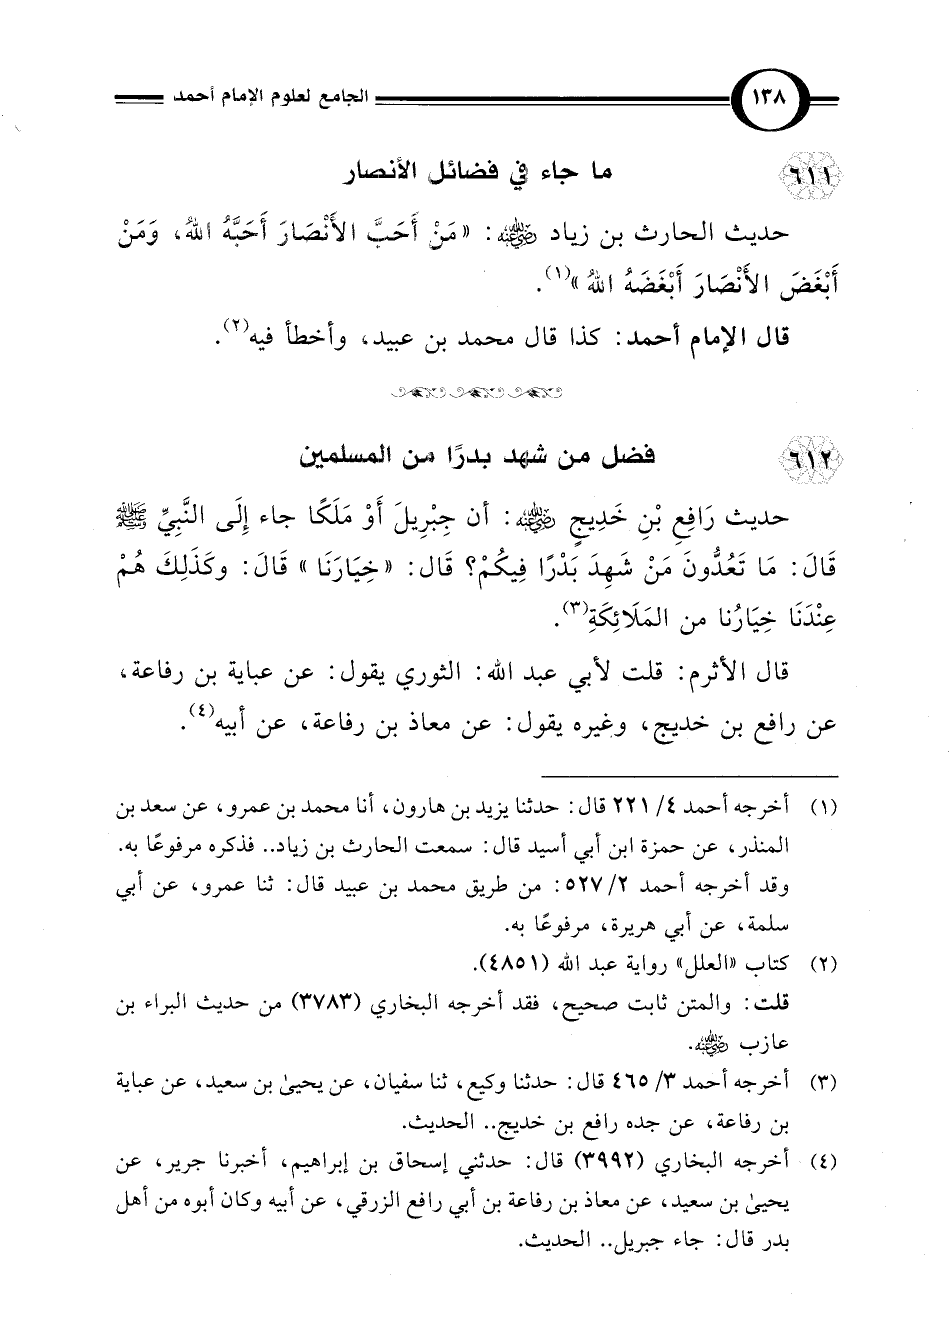 ١٣٨ الجامع لعلوم الإمام أحمد
٦١١ ما جاء في فضائل الأنصار
حديث الحارث بن زياد رضي الله عنه: «مَنْ أَحَبَّ الأَنْصَارَ أَحَبَّهُ اللهُ، وَمَنْ
أَبْغَضَ الأَنْصَارَ أَبْغَضَهُ اللهُ»(١).
قال الإمام أحمد: كذا قال محمد بن عبيد، وأخطأ فيه(٢).
٦١٢ فضل من شهد بدرًا من المسلمين
حديث رَافِعِ بْنِ خَدِيجٍ رضي الله عنه: أن جِبْرِيلَ أَوْ مَلَكًا جاء إِلَى النَّبِيِّ ﷺ
قَالَ: مَا تَعُدُّونَ مَنْ شَهِدَ بَدْرًا فِيكُمْ؟ قَالَ: «خِيَارَنَا» قَالَ: وكَذَلِكَ هُمْ
عِنْدَنَا خِيَارُنا من المَلَائِكَةِ(٣).
قال الأثرم: قلت لأبي عبد الله: الثوري يقول: عن عباية بن رفاعة،
عن رافع بن خديج، وغيره يقول: عن معاذ بن رفاعة، عن أبيه(٤).
(١) أخرجه أحمد ٤/ ٢٢١ قال: حدثنا يزيد بن هارون، أنا محمد بن عمرو، عن سعد بن
المنذر، عن حمزة ابن أبي أسيد قال: سمعت الحارث بن زياد.. فذكره مرفوعًا به.
وقد أخرجه أحمد ٢/ ٥٢٧: من طريق محمد بن عبيد قال: ثنا عمرو، عن أبي
سلمة، عن أبي هريرة، مرفوعًا به.
(٢) كتاب «العلل» رواية عبد الله (٤٨٥١).
قلت: والمتن ثابت صحيح، فقد أخرجه البخاري (٣٧٨٣) من حديث البراء بن
عازب رضي الله عنه.
(٣) أخرجه أحمد ٣/ ٤٦٥ قال: حدثنا وكيع، ثنا سفيان، عن يحيىٰ بن سعيد، عن عباية
بن رفاعة، عن جده رافع بن خديج.. الحديث.
(٤) أخرجه البخاري (٣٩٩٢) قال: حدثني إسحاق بن إبراهيم، أخبرنا جرير، عن
يحيىٰ بن سعيد، عن معاذ بن رفاعة بن أبي رافع الزرقي، عن أبيه وكان أبوه من أهل
بدر قال: جاء جبريل.. الحديث.